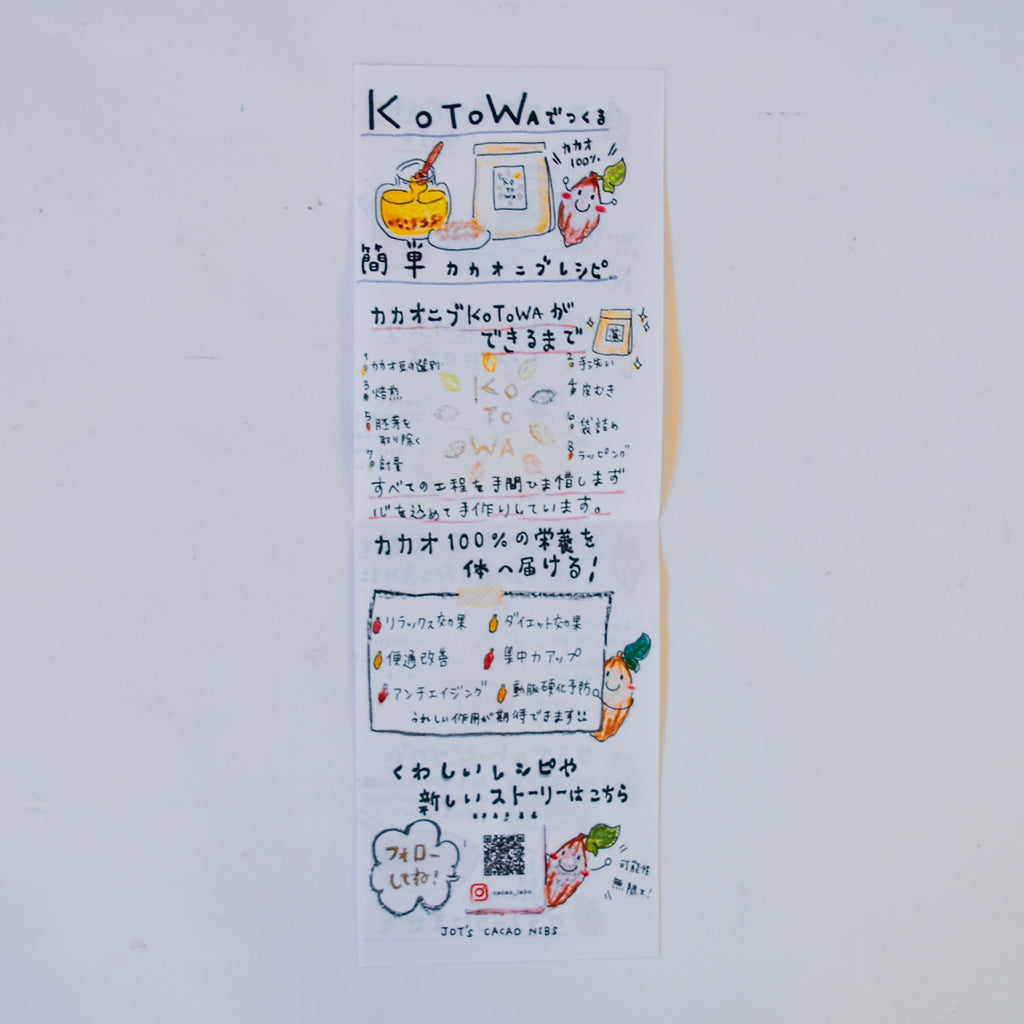 KOTOWAでつくる
カカオ
100%
KO
TO
WA
簡単 カカオニブレシピ
カカオニブKOTOWAが
できるまで
1 カカオ豆の選別
2 手洗い
3 焙煎
4 皮むき
5 胚芽を
取り除く
6 袋詰め
7 計量
8 ラッピング
KO
TO
WA
すべての工程を手間ひま惜しまず
心を込めて手作りしています。
カカオ100%の栄養を
体へ届ける!
リラックス効果
ダイエット効果
便通改善
集中力アップ
アンチエイジング
動脈硬化予防
うれしい作用が期待できます!!
くわしいレシピや
新しいストーリーはこちら
フォロー
してね!
cacao_labo
可能性
無限大!
JOT'S CACAO NIBS